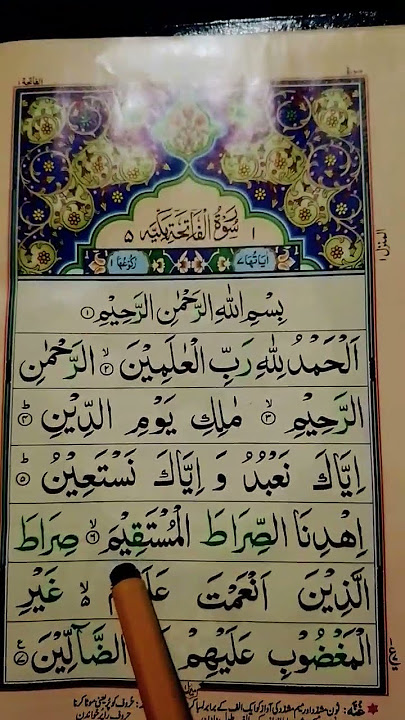 الفاتحة ١
١ سُوْرَةُ الْفَاتِحَةِ مَكِّيَّةٌ ٥
اٰيَاتُهَا ٧ رُكُوْعُهَا ١
بِسْمِ اللهِ الرَّحْمٰنِ الرَّحِيْمِ ۝١
اَلْحَمْدُ لِلّٰهِ رَبِّ الْعٰلَمِيْنَ ۝٢ الرَّحْمٰنِ
الرَّحِيْمِ ۝٣ مٰلِكِ يَوْمِ الدِّيْنِ ۝٤
اِيَّاكَ نَعْبُدُ وَ اِيَّاكَ نَسْتَعِيْنُ ۝٥
اِهْدِنَا الصِّرَاطَ الْمُسْتَقِيْمَ ۝٦ صِرَاطَ
الَّذِيْنَ اَنْعَمْتَ غَيْرِ
الْمَغْضُوْبِ عَلَيْهِمْ الضَّآلِّيْنَ ۝٧
المنزل ١